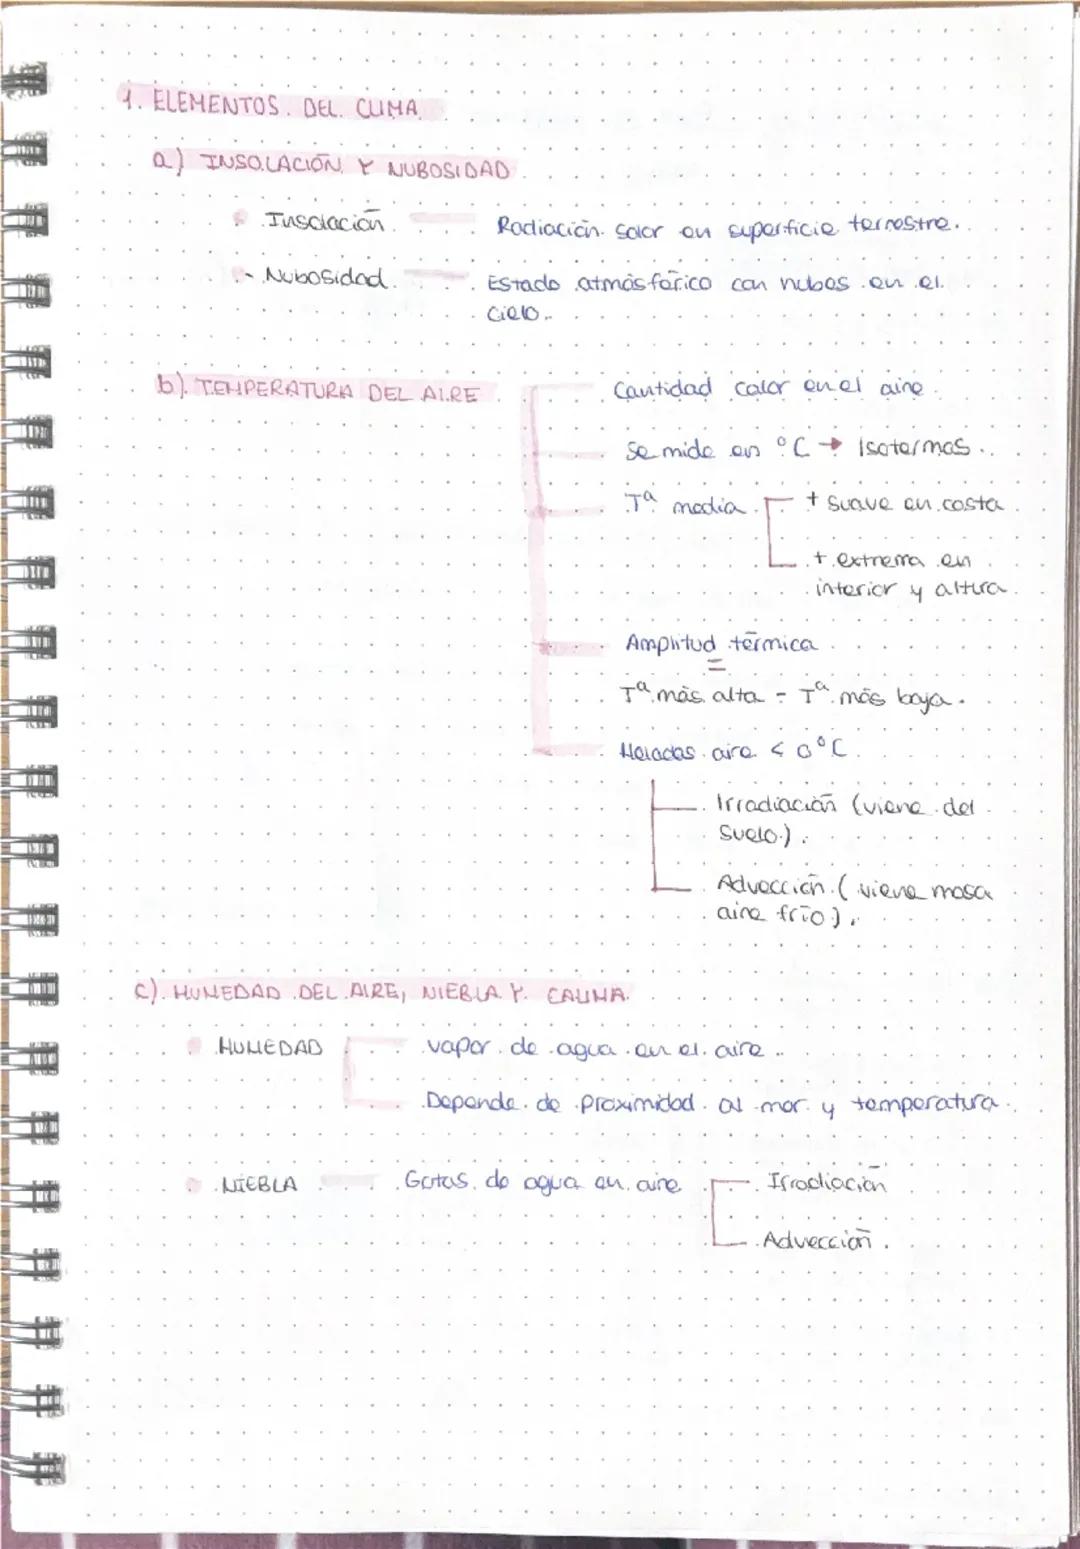 1. ELEMENTOS DEL CLIMA
a) INSOLACIÓN Y NUBOSIDAD
Insolación Radiación solar en superficie terrestre.
- Nubosidad Estado atmósférico con nubes en el
cielo.
b) TEMPERATURA DEL AIRE Cantidad calor en el aire
Se mide en °C → Isotermas.
Tª media + suave en costa
+ extrema en
interior y altura
Amplitud térmica
=
Tª más alta - Tª más baja.
Heladas aire < 0°C
Irradiación (viene del
suelo).
Advección (viene masa
aire frío).
c) HUMEDAD DEL AIRE, NIEBLA Y CALIMA
HUMEDAD vapor de agua en el aire.
Depende de proximidad al mar y temperatura.
NIEBLA Gotas de agua en aire Irradiación
Advección.